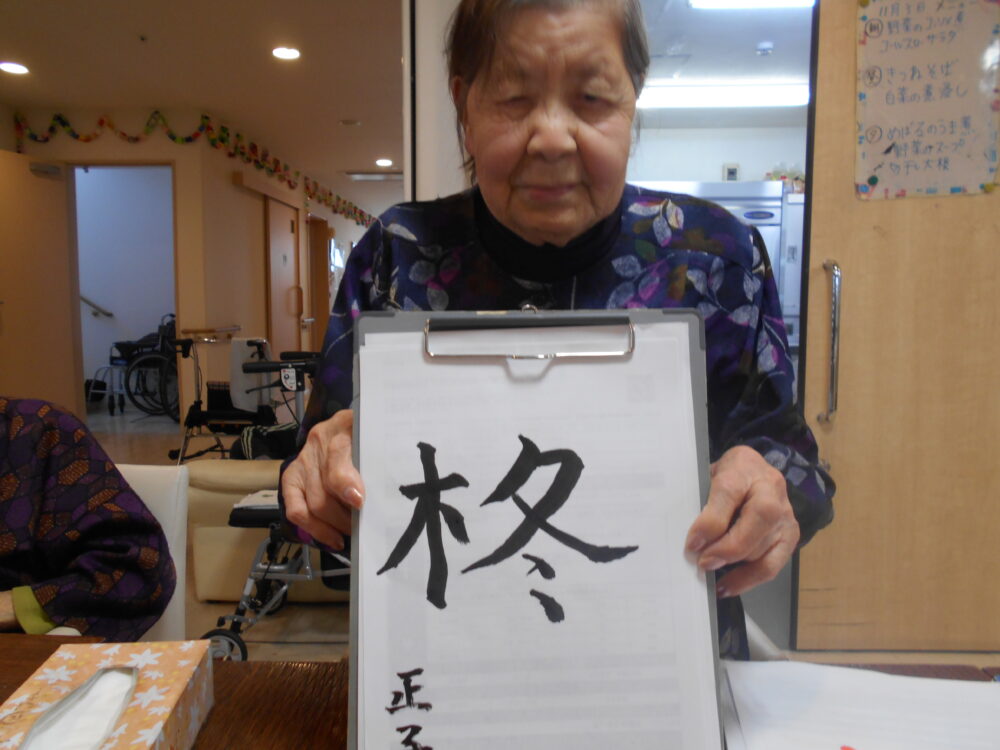 柊
正子
11月3日 メニュー
野菜のコンソメ煮
コールスローサラダ
きつねそば
白菜の煮浸し
夕 めばるのうま煮
野菜スープ
切干大根